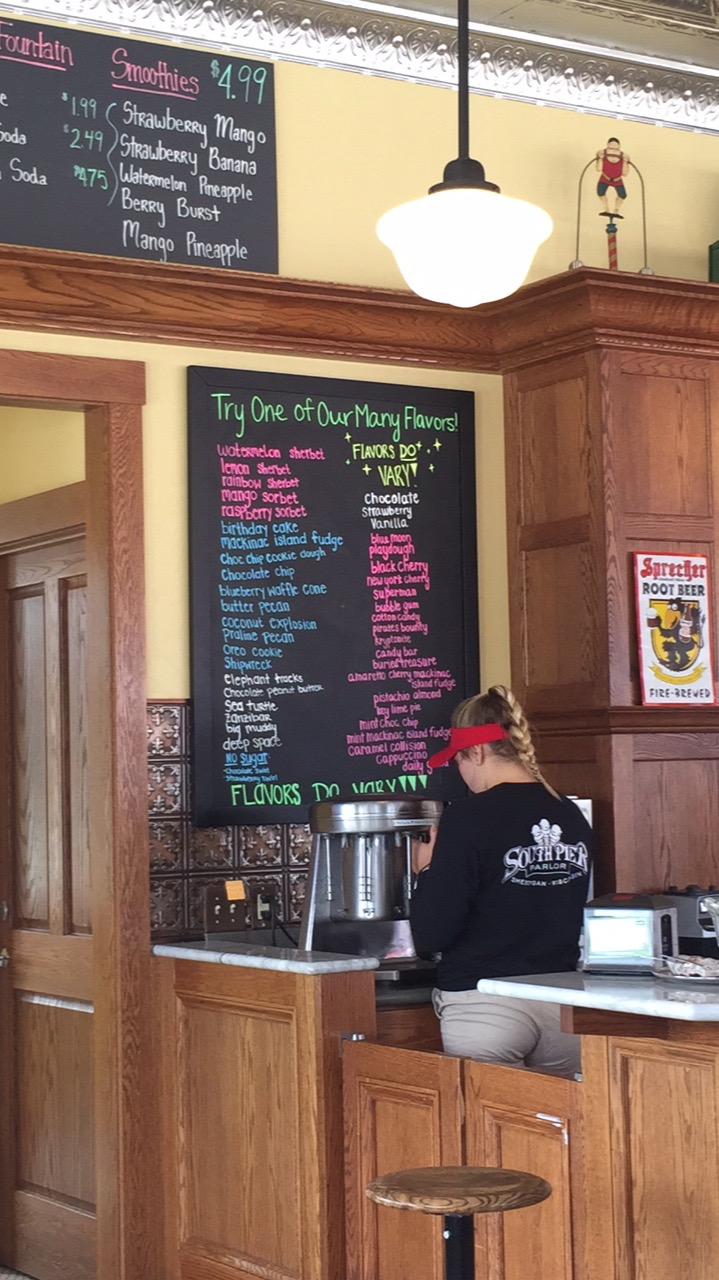 Fountain
Smoothies $4.99
$1.99
Strawberry Mango
Soda $2.49
Strawberry Banana
Soda $4.75
Watermelon Pineapple
Berry Burst
Mango Pineapple
Try One of Our Many Flavors!
watermelon sherbet
lemon sherbet
rainbow sherbet
mango sorbet
raspberry sorbet
birthday cake
mackinac island fudge
choc chip cookie dough
Chocolate chip
blueberry waffle cone
butter pecan
coconut explosion
Praline pecan
Oreo cookie
Shipwreck
elephant tracks
Chocolate peanut butter
Sea turtle
Zanzibar
big muddy
deep space
NO Sugar
-Chocolate swirl
-Strawberry swirl
FLAVORS DO
VARY!
Chocolate
Strawberry
Vanilla
blue moon
playdough
black cherry
new york cherry
Superman
bubble gum
cotton candy
pirates bounty
Kryptonite
candy bar
buried treasure
amaretto cherry mackinac
island fudge
pistachio almond
key lime pie
mint choc chip
mint mackinac island fudge
Caramel collision
Cappuccino
daily
FLAVORS DO VARY!!!
Sprecher
ROOT BEER
FIRE-BREWED
SOUTH PIER
PARLOR
SHEBOYGAN - WISCONSIN